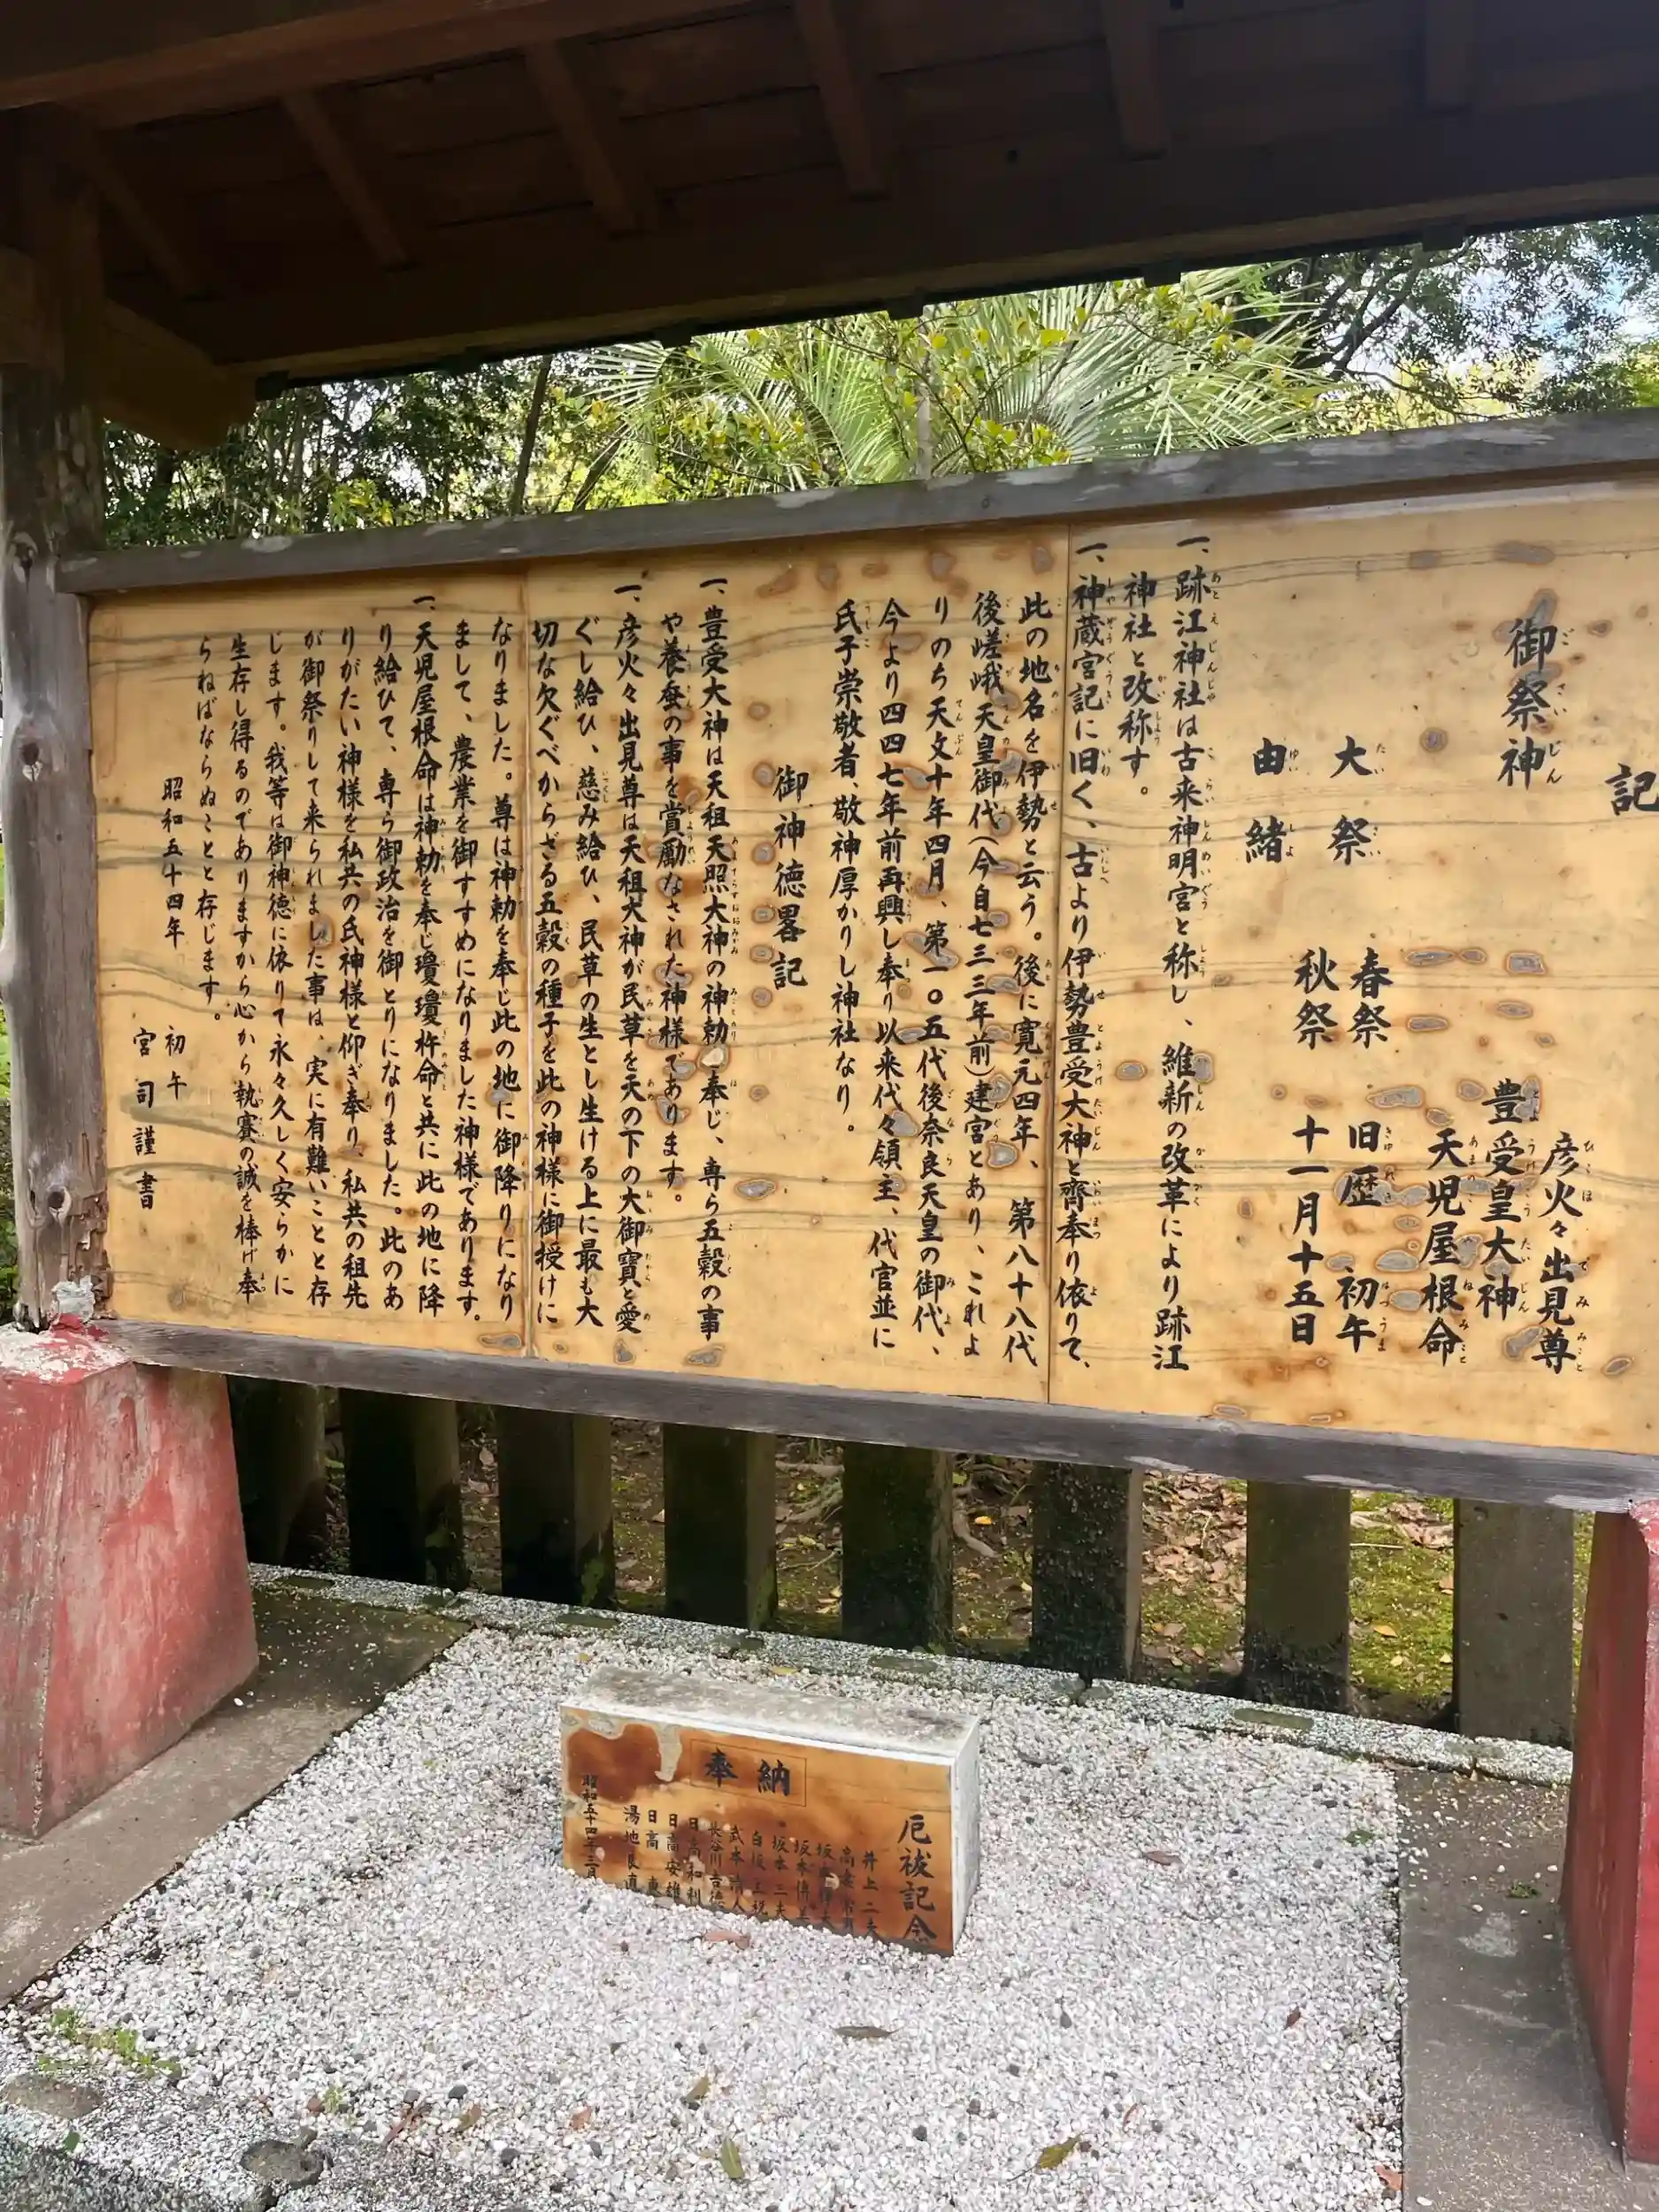 記
御祭神
彦火々出見尊
豊受皇大神
天児屋根命
大祭
春祭 旧歴 初午
秋祭 十一月十五日
由緒
一、跡江神社は古来神明宮と称し、維新の改革により跡江
神社と改称す。
一、神蔵宮記に旧く、古より伊勢豊受大神と齊奉り依りて、
此の地名を伊勢と云う。後に寛元四年、第八十八代
後嵯峨天皇御代(今自七三三年前)建宮とあり、これよ
りのち天文十年四月、第一〇五代後奈良天皇の御代、
今より四四七年前再興し奉り以来代々領主、代官並に
氏子崇敬者、敬神厚かりし神社なり。
御神徳畧記
一、豊受大神は天祖天照大神の神勅奉じ、専ら五穀の事
や養蚕の事を賞勵なされた神様であります。
一、彦火々出見尊は天祖大神が民草を天の下の大御寶と愛
ぐし給ひ、慈み給ひ、民草の生とし生ける上に最も大
切な欠ぐべからざる五穀の種子を此の神様に御授けに
なりました。尊は神勅を奉じ此の地に御降りになり
まして、農業を御すすめになりました神様であります。
一、天児屋根命は神勅を奉じ瓊瓊杵命と共に此の地に降
り給ひて、専ら御政治を御とりになりました。此のあ
りがたい神様を私共の氏神様と仰ぎ奉り、私共の租先
が御祭りして来られました事は、実に有難いことと存
じます。我等は御神徳に依りて永々久しく安らかに
生存し得るのでありますから心から執賽の誠を棒げ奉
らねばならぬことと存じます。
昭和五十四年 初午
宮司謹書
奉納
厄祓記念
井上二夫
坂本二夫
長谷川吉徳
日高和利
日高安雄
日高
湯地良直
昭和五十四年三月